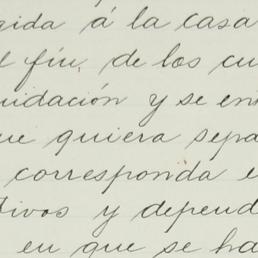 gida á la casa
l fin de los cu
uidación y se en
ue quiera sepa
corresponda e
tivos y depend
en que se ha